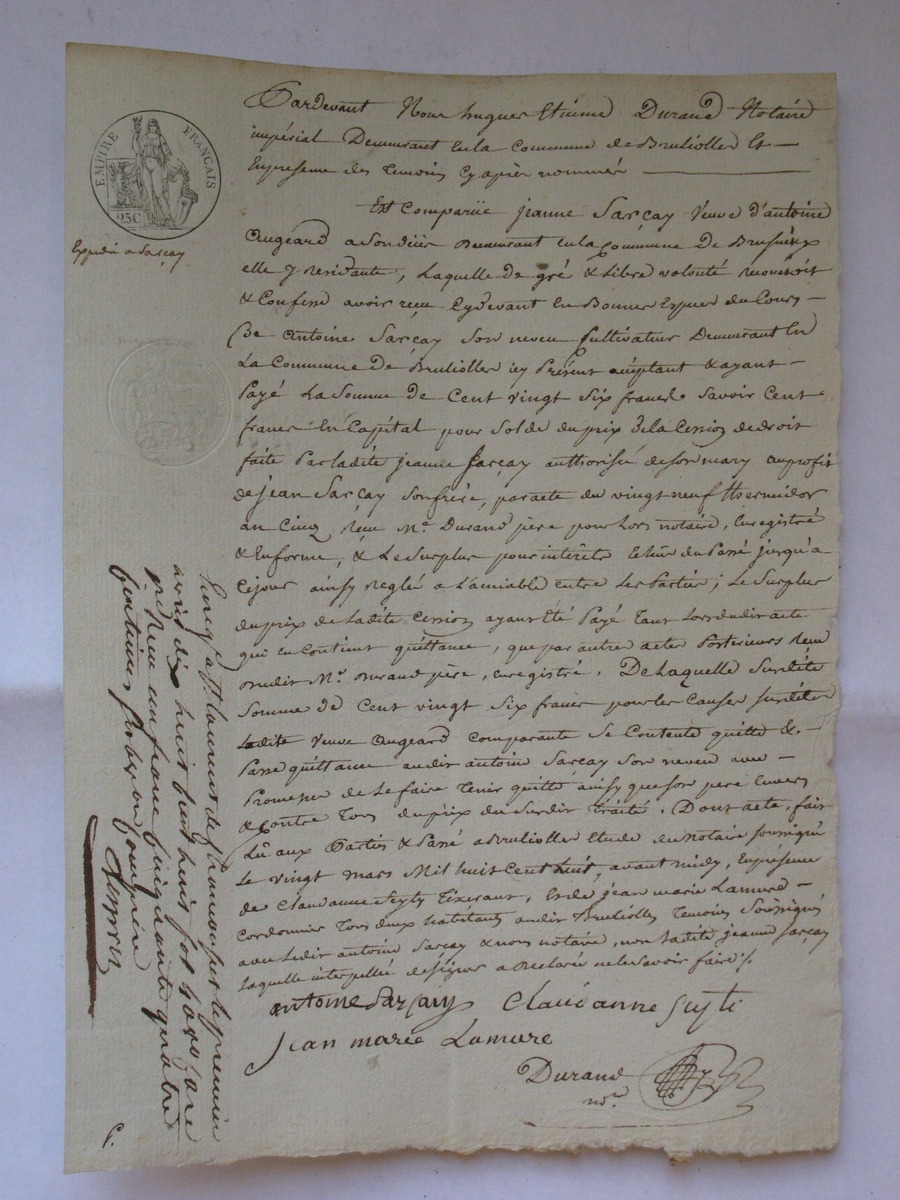 EMPIRE FRANÇAIS
25C
Expédié a Sarçay
Pardevant Nous hugues Etienne Durand Notaire
impérial Demeurant En la Commune de Brulliolles Et
En presence des Temoins Cy apres nommés
Est Comparüe jeanne Sarçay Veuve d'antoine
augeard a Son décès Demeurant en la Commune de Brussieux
elle y residante, Laquelle de gré & Libre volonté reconnoit
& Confesse avoir reçu Cydevant En Bonnes Especes du Cours
De antoine Sarçay Son neveu Cultivateur Demeurant En
La Commune de Brulliolles icy Présent acceptant & ayant
Payé La Somme de Cent vingt Six francs Savoir Cent
francs En Capital pour Solde du prix de la Cession de droit
faite Par ladite jeanne Sarçay authorisée de son mary au profit
de jean Sarçay Son frère, par acte du vingt neuf thermidor
an Cinq, reçu Me Durand père pour lors notaire, Enregistré
& En forme, & Le Surplus pour intérêts du Passé jusqu'a
Ce jour ainsy reglé a L'amiable entre Les Parties; Le Surplus
du prix de Ladite Cession ayant Eté Payé Tant Lors dudit acte
qui en Contient quittance, que par autres actes Postérieurs reçu
mudit Me. Durand père, enregistré. De Laquelle Susdite
Somme de Cent vingt Six francs pour les Causes Susdites
Ladite Veuve augeard comparante Se Contente quitte &
Passe quittance audit antoine Sarçay Son neveu avec
Promesses de Le faire Tenir quitte ainsy que son père Envers
& Contre Tous du prix du Susdit Traité. Dont acte, fait
Lû aux Parties & Passé a Brulliolles Etude du Notaire soussigné
Le vingt mars Mil huit Cent huit, avant midy, En présence
de Claudanne Seyty Tixerant, Et de jean marie Lamure
Cordonnier Tous deux habitants audit Brulliolles Temoins Soussignés
avec Ledit antoine Sarçay & nous notaire, non Ladite jeanne Sarçay
Laquelle interpellée de signer a Declaré ne le Savoir faire /.
antoine Sarçaiy Claudanne Seyti
Jean marie Lamure
Durand
nre.
Enreg. a St. Laurent de Chamousset le premier
avril dix huit cent huit fol
reçu un franc cinquante quatre
centimes subvention comprise